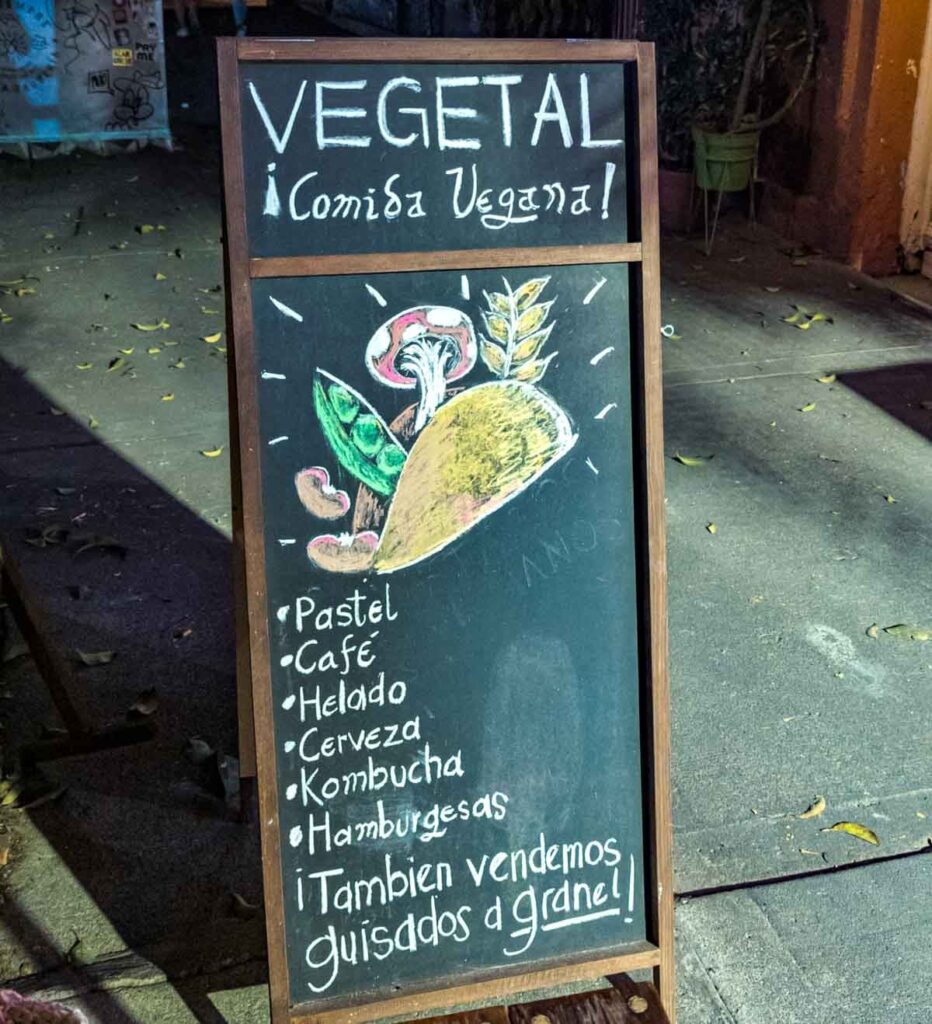 VEGETAL
¡Comida Vegana!
•Pastel
•Café
•Helado
•Cerveza
•Kombucha
•Hamburgesas
¡Tambien vendemos
guisados a granel!
PAY
ME